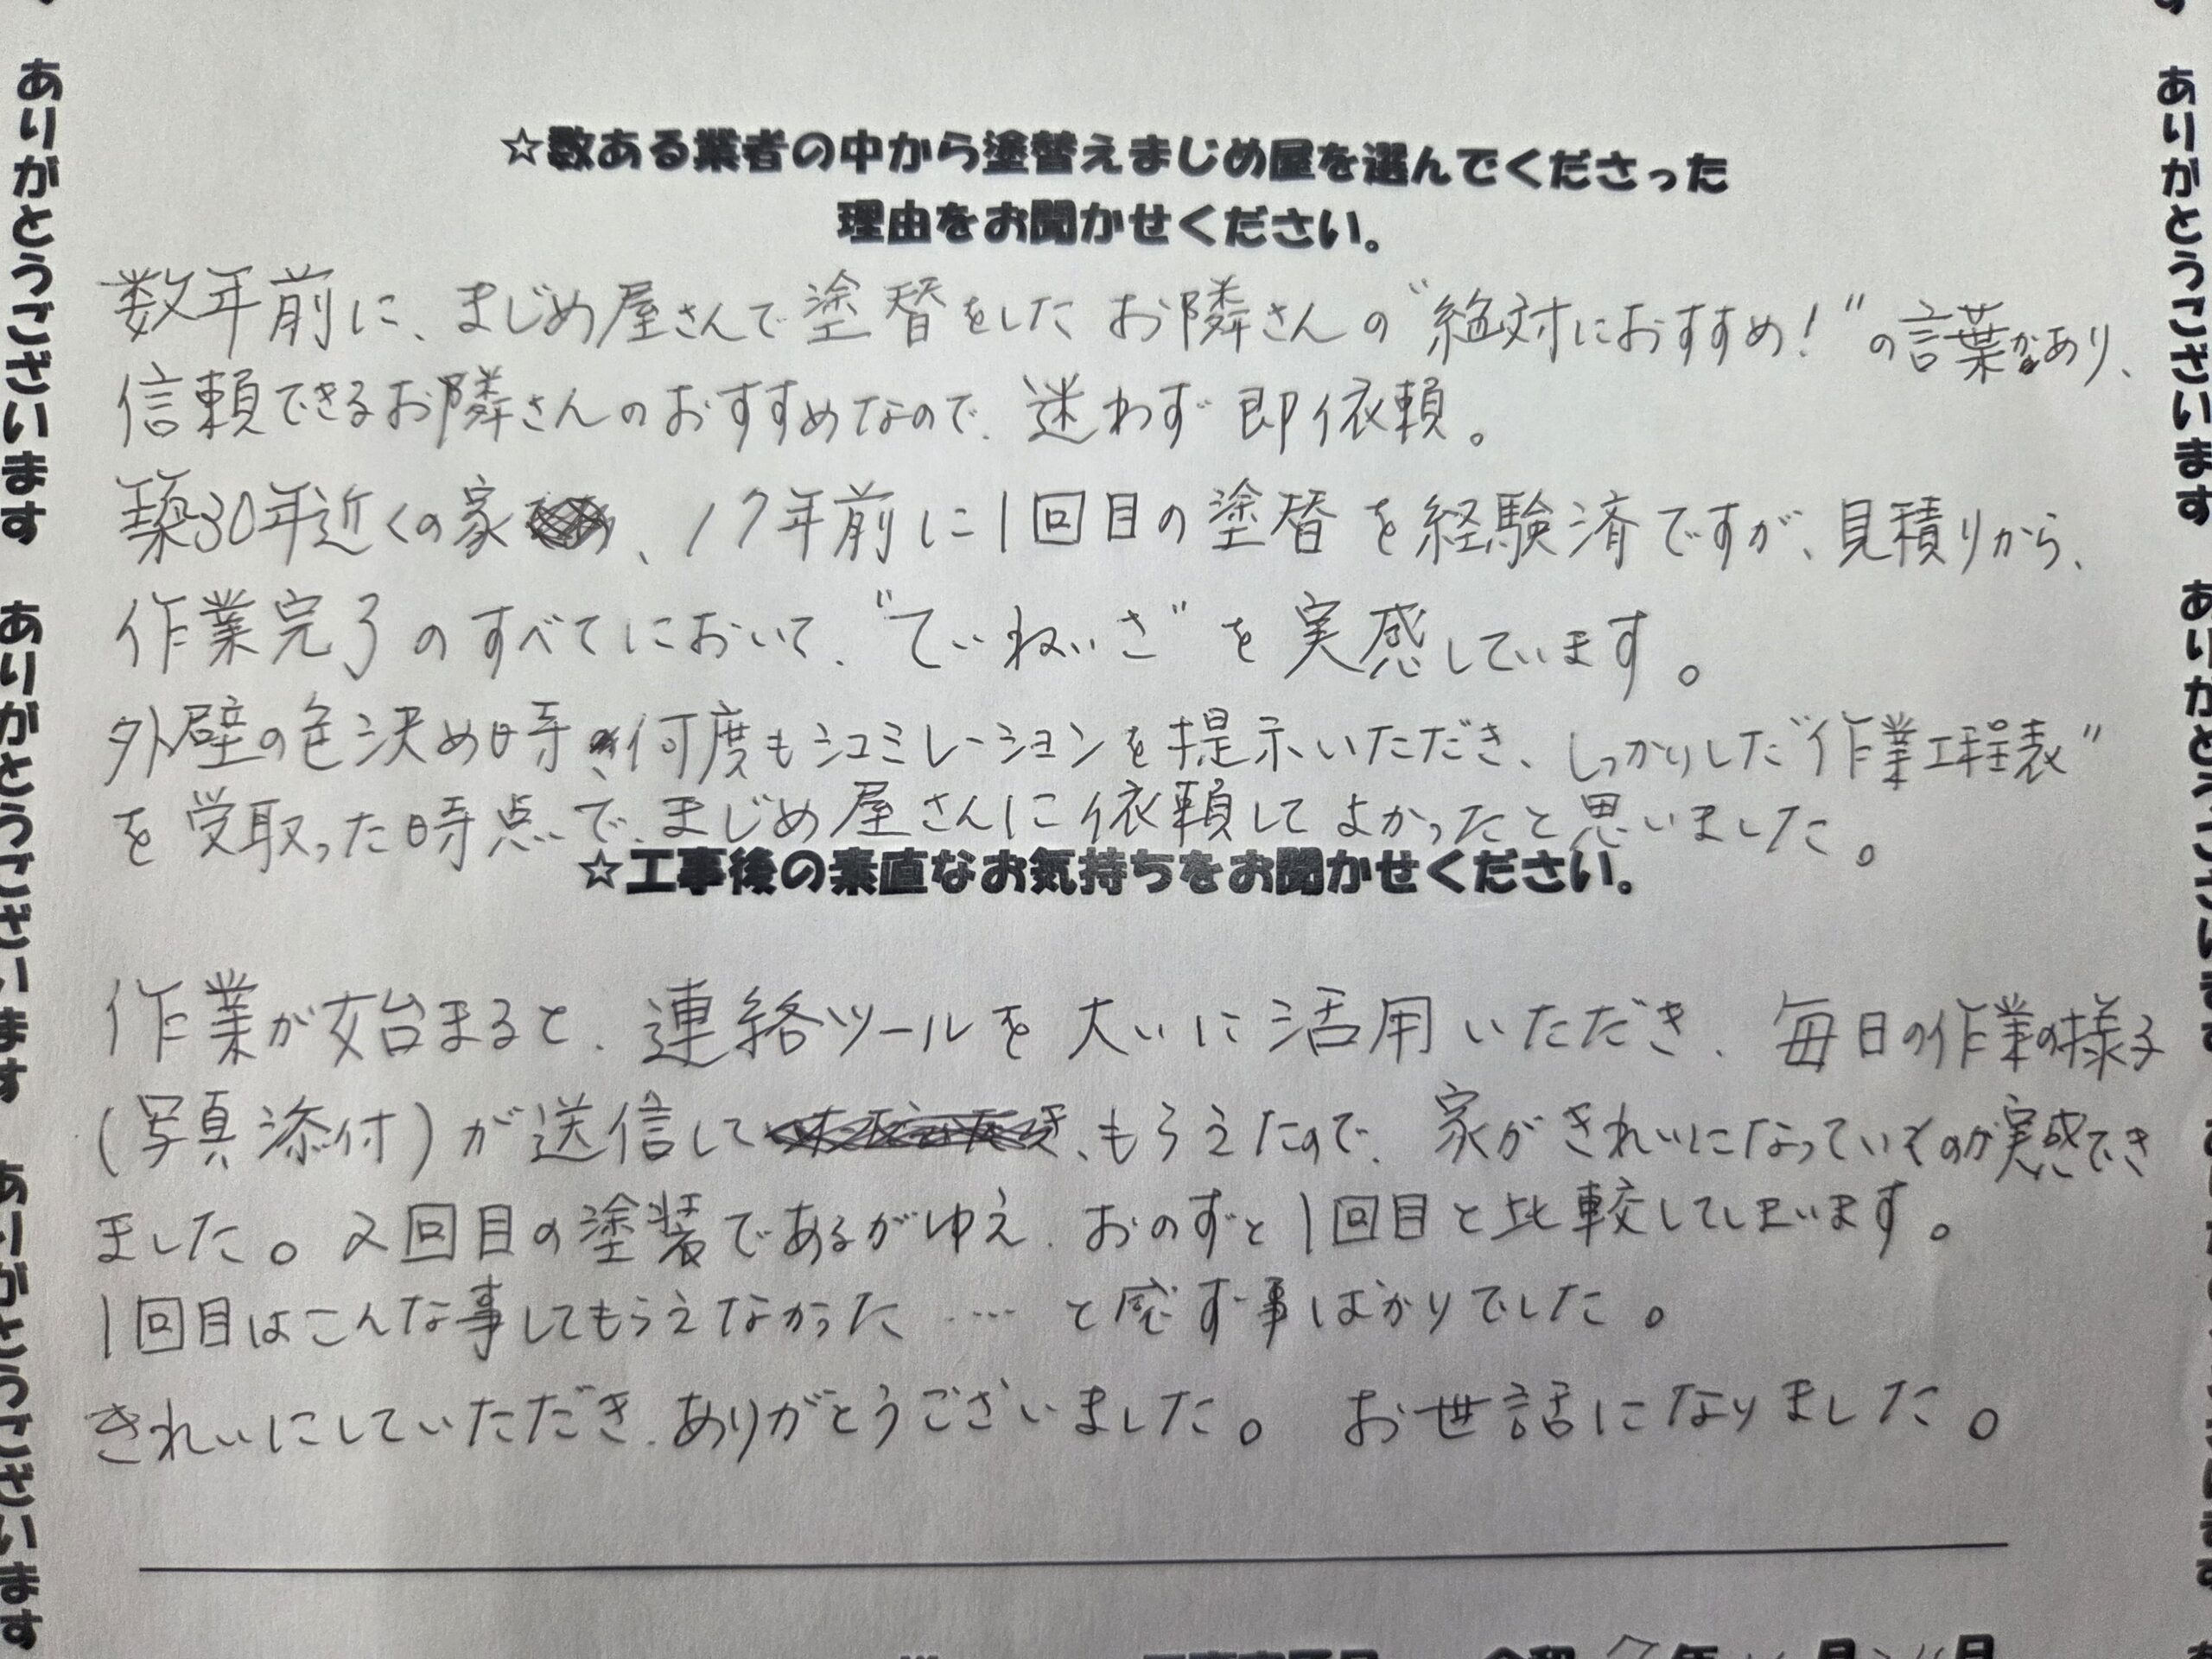 ☆数ある業者の中から塗替えまじめ屋を選んでくださった
理由をお聞かせください。
数年前に、まじめ屋さんで塗替をしたお隣さんの"絶対におすすめ！"の言葉があり、
信頼できるお隣さんのおすすめなので、迷わず即依頼。
築30年近くの家、17年前に1回目の塗替を経験済ですが、見積りから、
作業完了のすべてにおいて、"ていねいさ"を実感しています。
外壁の色決め時、何度もシュミレーションを提示いただき、しっかりした"作業工程表"
を受取った時点で、まじめ屋さんに依頼してよかったと思いました。
☆工事後の素直なお気持ちをお聞かせください。
作業が始まると、連絡ツールを大いに活用いただき、毎日の作業の様子
(写真添付)が送信して、もらえたので、家がきれいになっていくのが実感でき
ました。2回目の塗装であるがゆえ、おのずと1回目と比較してしまいます。
1回目はこんな事してもらえなかった……と感ず事ばかりでした。
きれいにしていただき、ありがとうございました。お世話になりました。
ありがとうございます ありがとうございます ありがとうございます
ありがとうございます